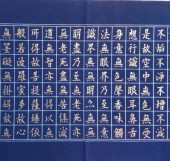 不垢不淨不增不減
是故空中無色無受
想行識無眼耳鼻舌
身意無色聲香味觸
法無眼界乃至無意
識界無無明亦無無
明盡乃至無老死亦
無老死盡無苦集滅
道無智亦無得以無
所得故菩提薩埵依
般若波羅蜜多故心
無罣礙無罣礙故無